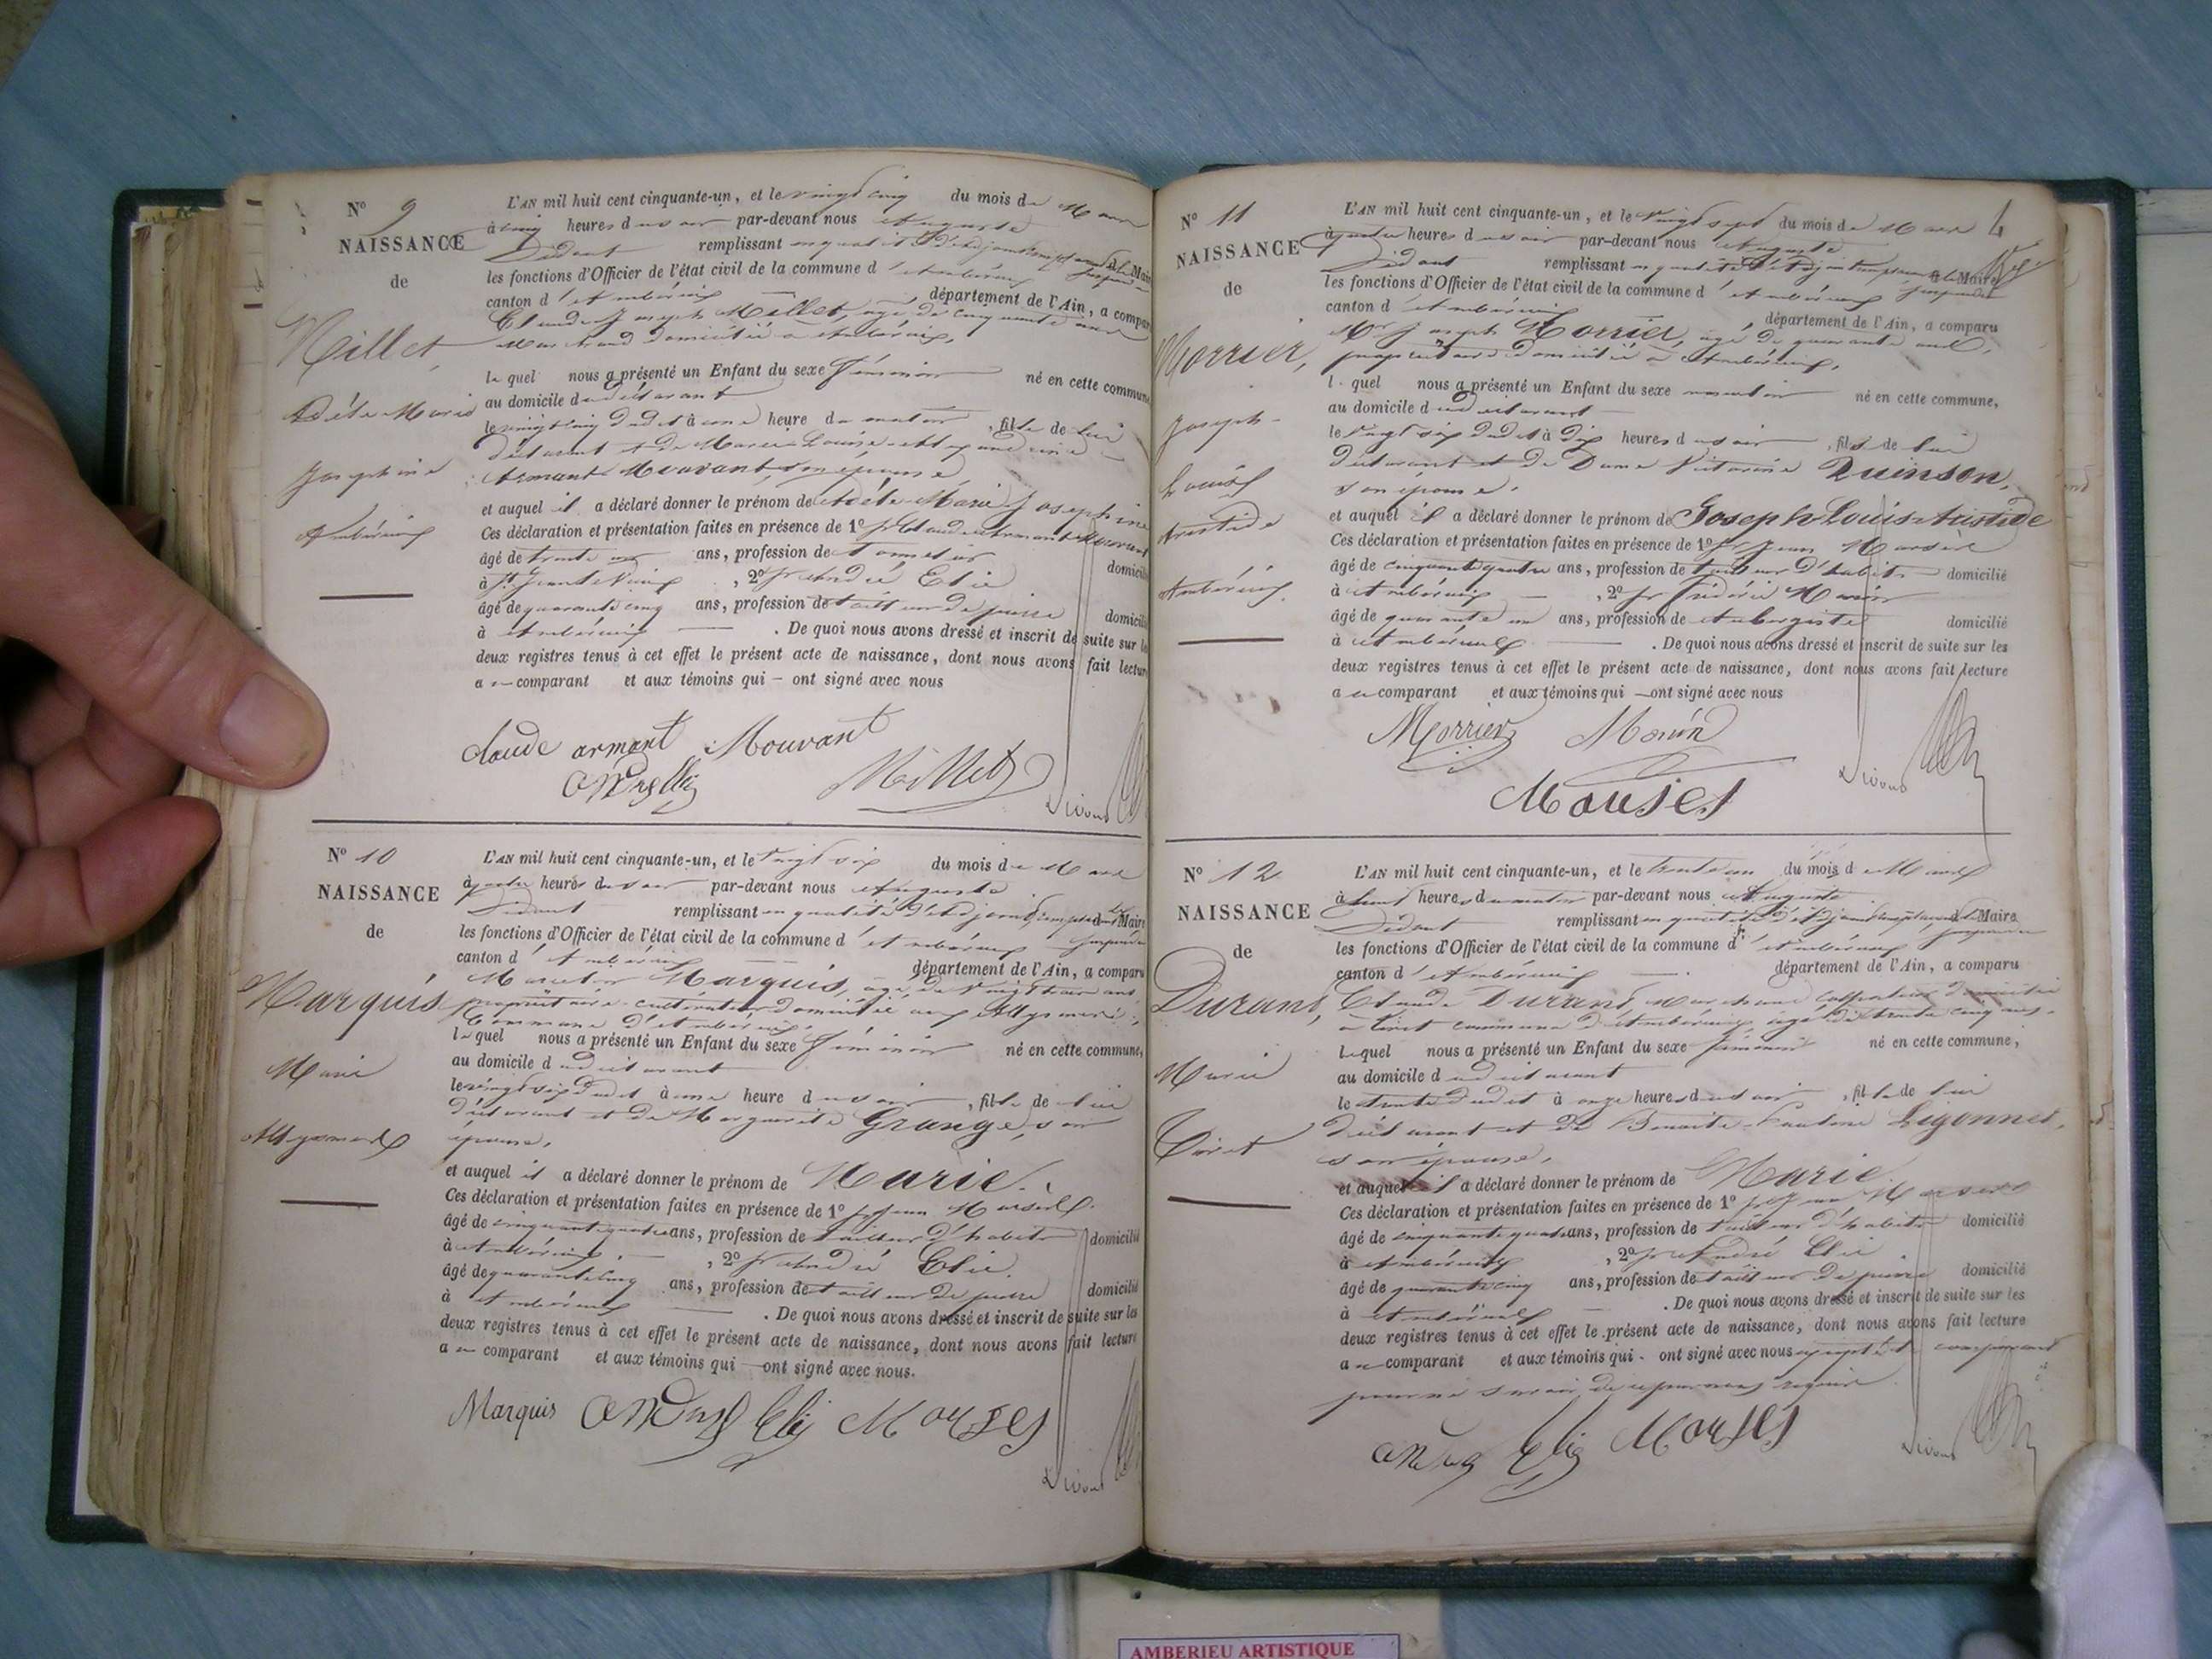 N° 9
NAISSANCE
de
Millet
Adèle Marie
Joséphine
Ambérieux
L'AN mil huit cent cinquante-un, et le vingt cinq du mois de Mars
à cinq heures du soir par-devant nous Auguste
Didout remplissant en qualité d'adjoint de Maire
les fonctions d'Officier de l'état civil de la commune d'Ambérieux
canton d'Ambérieux département de l'Ain, a comparu
Claude Joseph Millet, âgé de cinquante ans
Marchand domicilié à Ambérieux,
lequel nous a présenté un Enfant du sexe féminin né en cette commune
au domicile du déclarant
le vingt cinq dudit à une heure du matin, fille de lui
déclarant et de Marie Louise
Armant Mouvant, son épouse
et auquel il a déclaré donner le prénom de Adèle Marie Joséphine
Ces déclaration et présentation faites en présence de 1° Claude Armant Mouvant
âgé de trente ans, profession de domicilié
à St Jean le Vieux, 2° André Elie
âgé de quarante cinq ans, profession de tailleur de pierre domicilié
à Ambérieux . De quoi nous avons dressé et inscrit de suite sur les
deux registres tenus à cet effet le présent acte de naissance, dont nous avons fait lecture
au comparant et aux témoins qui - ont signé avec nous
claude armant Mouvant
Millet
N° 10
NAISSANCE
de
Marquis
Marie
L'AN mil huit cent cinquante-un, et le vingt six du mois de Mars
à quatre heures du soir par-devant nous Auguste
Didout remplissant en qualité d'adjoint Maire
les fonctions d'Officier de l'état civil de la commune d'Ambérieux
canton d'Ambérieux département de l'Ain, a comparu
Marquis, âgé de vingt trois ans
propriétaire cultivateur domicilié
Commune d'Ambérieux,
lequel nous a présenté un Enfant du sexe féminin né en cette commune,
au domicile du déclarant
le vingt six dudit à une heure du soir, fille de lui
déclarant et de Marguerite Grange, son
épouse,
et auquel il a déclaré donner le prénom de Marie.
Ces déclaration et présentation faites en présence de 1° Jean
âgé de cinquante quatre ans, profession de tailleur d'habits domicilié
à Ambérieux, 2° André Elie.
âgé de quarante cinq ans, profession de tailleur de pierre domicilié
à Ambérieux . De quoi nous avons dressé et inscrit de suite sur les
deux registres tenus à cet effet le présent acte de naissance, dont nous avons fait lecture
au comparant et aux témoins qui - ont signé avec nous.
Marquis
N° 11 4
NAISSANCE
de
Morrier,
Joseph
Louis
Aristide
Ambérieux.
L'AN mil huit cent cinquante-un, et le vingt sept du mois de Mars
à quatre heures du soir par-devant nous Auguste
Didout remplissant en qualité d'adjoint Maire
les fonctions d'Officier de l'état civil de la commune d'Ambérieux
canton d'Ambérieux département de l'Ain, a comparu
Mr Joseph Morrier, âgé de quarante ans,
propriétaire domicilié à Ambérieux,
lequel nous a présenté un Enfant du sexe masculin né en cette commune,
au domicile du déclarant
le vingt six dudit à dix heures du soir, fils de lui
déclarant et de Dame Victorine Quinson,
son épouse.
et auquel il a déclaré donner le prénom de Joseph Louis Aristide
Ces déclaration et présentation faites en présence de 1° Jean
âgé de cinquante quatre ans, profession de tailleur d'habits domicilié
à Ambérieux, 2° Frédéric
âgé de quarante un ans, profession de Aubergiste domicilié
à Ambérieux . De quoi nous avons dressé et inscrit de suite sur les
deux registres tenus à cet effet le présent acte de naissance, dont nous avons fait lecture
au comparant et aux témoins qui - ont signé avec nous
Morrier
N° 12
NAISSANCE
de
Durand,
Marie
Tiret
L'AN mil huit cent cinquante-un, et le trente un du mois de Mars
à huit heures du matin par-devant nous Auguste
Didout remplissant en qualité d'adjoint Maire
les fonctions d'Officier de l'état civil de la commune d'Ambérieux
canton d'Ambérieux département de l'Ain, a comparu
Claude Durand, Marchand colporteur domicilié
à Tiret commune d'Ambérieux, âgé de trente cinq ans,
lequel nous a présenté un Enfant du sexe féminin né en cette commune,
au domicile du déclarant
le trente dudit à onze heures du soir, fille de lui
déclarant et de Benoite Pauline Ligonnet,
son épouse,
et auquel il a déclaré donner le prénom de Marie
Ces déclaration et présentation faites en présence de 1° Jean
âgé de cinquante quatre ans, profession de tailleur d'habits domicilié
à Ambérieux, 2° André Elie
âgé de quarante cinq ans, profession de tailleur de pierre domicilié
à Ambérieux . De quoi nous avons dressé et inscrit de suite sur les
deux registres tenus à cet effet le présent acte de naissance, dont nous avons fait lecture
au comparant et aux témoins qui - ont signé avec nous excepté le comparant
pour ne savoir de ce par nous requis
AMBERIEU ARTISTIQUE